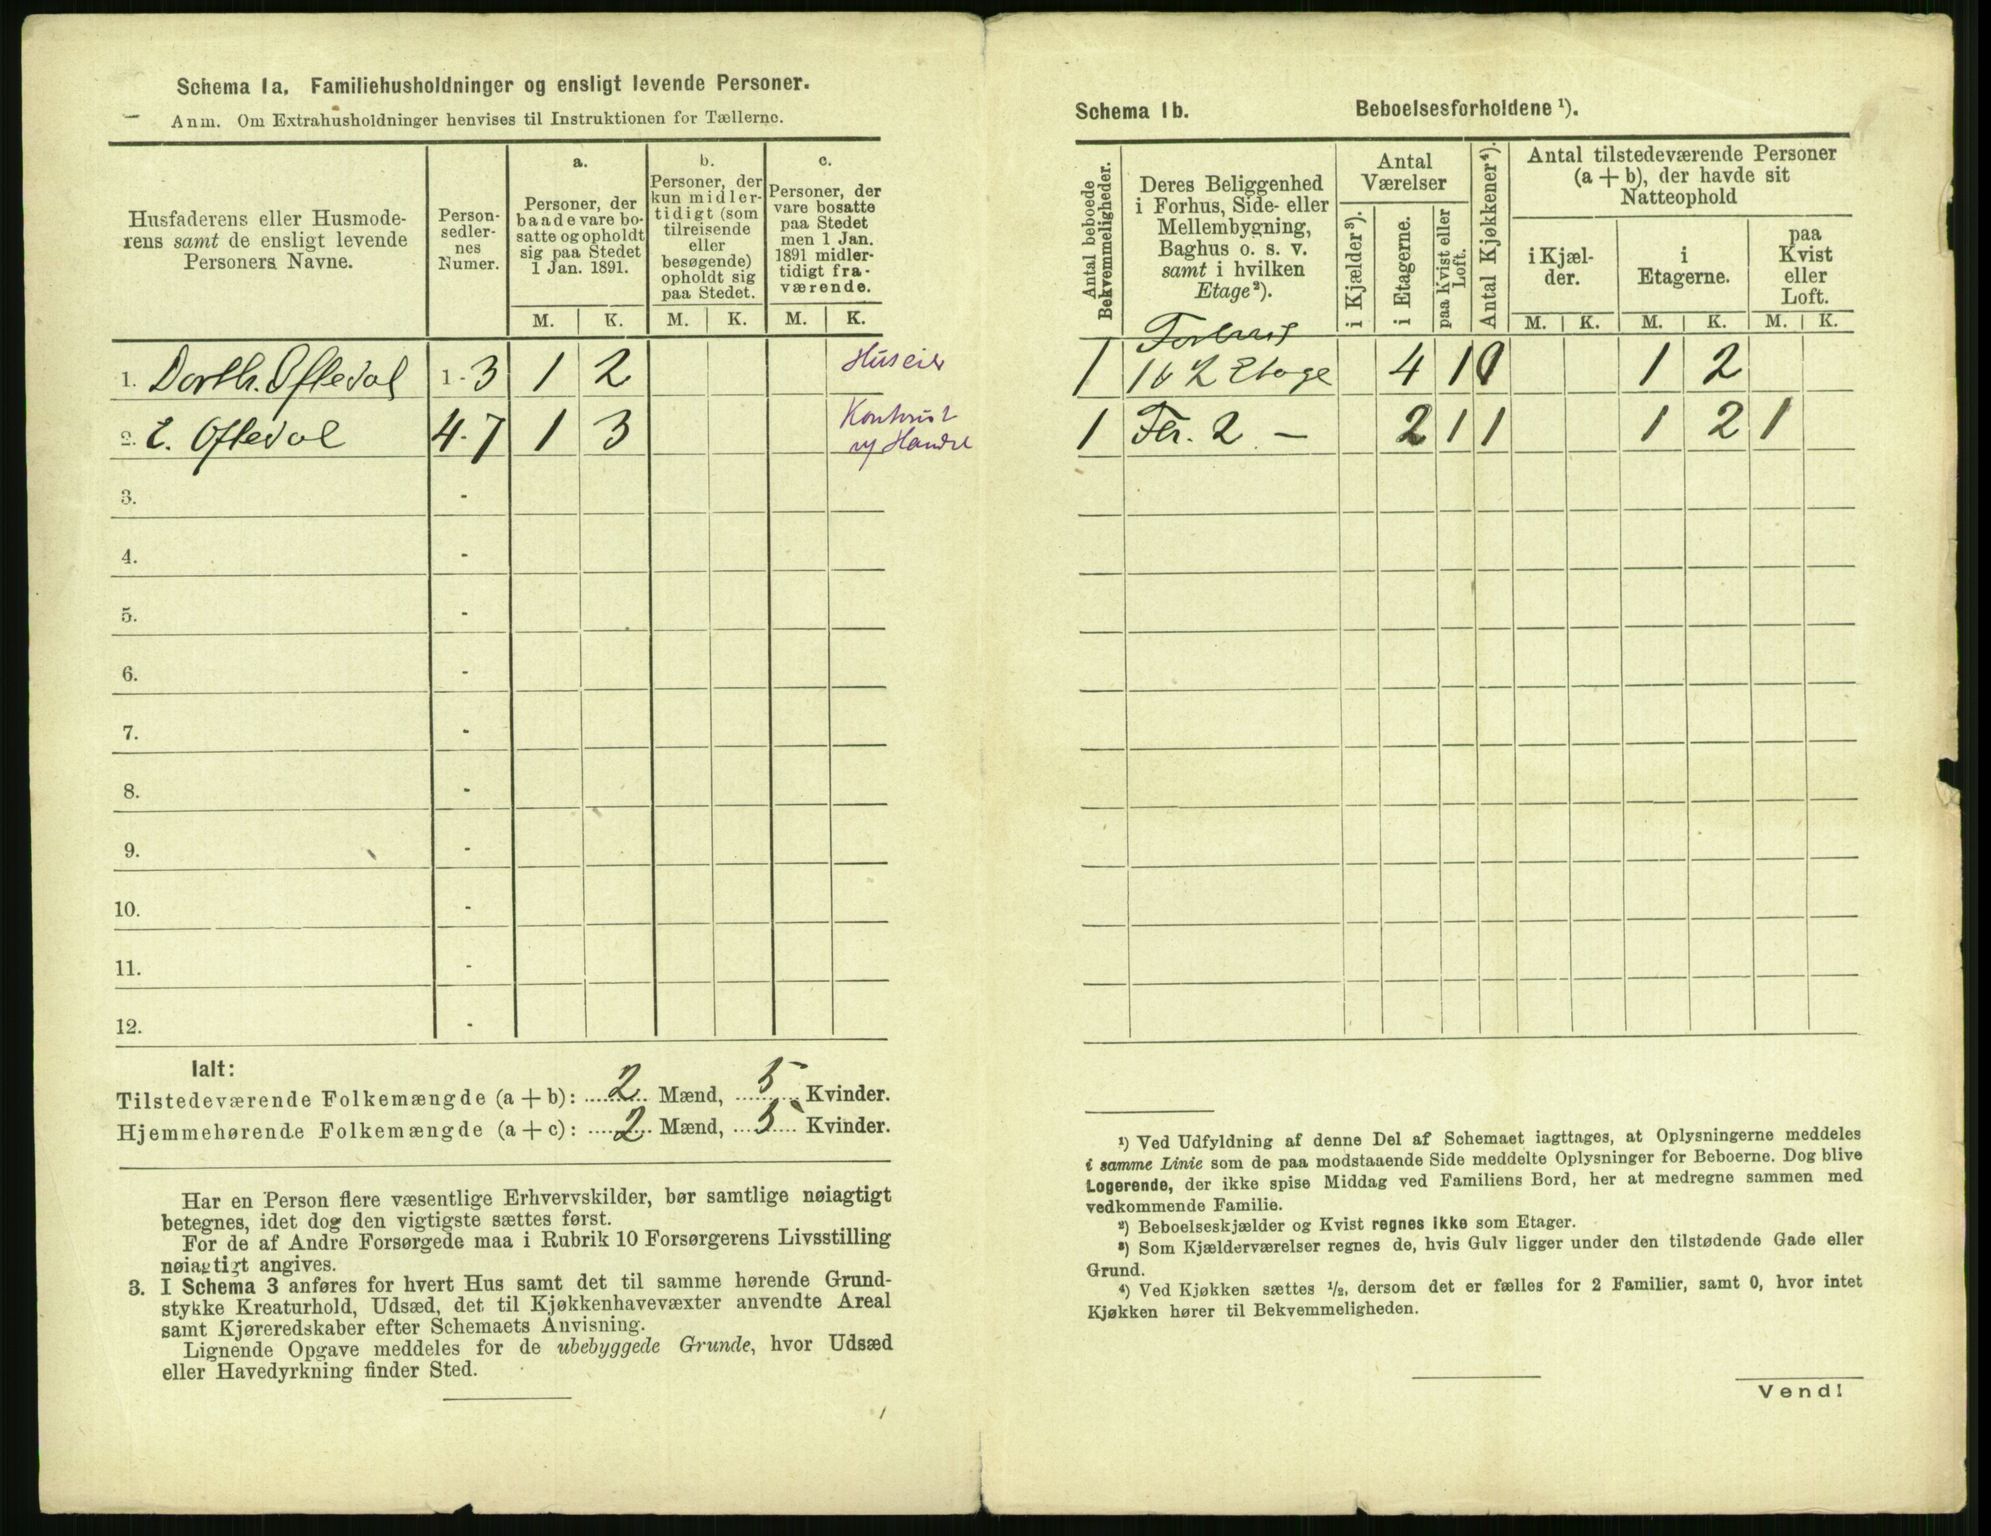 Schema 1a. Familiehusholdninger og ensligt levende Personer.
Anm. Om Extrahusholdninger henvises til Instruktionen for Tællerne.
Husfaderens eller Husmode-
rens samt de ensligt levende
Personers Navne.
Person-
sedler-
nes
Numer.
a.
Personer, der
baade vare bo-
satte og opholdt
sig paa Stedet
1 Jan. 1891.
b.
Personer, der
kun midler-
tidigt (som
tilreisende
eller
besøgende)
opholdt sig
paa Stedet.
c.
Personer, der
vare bosatte
paa Stedet
men 1 Jan.
1891 midler-
tidigt fra-
værende.
M. K. M. K. M. K.
1. Dorth. Oftedal 1-3 1 2 Huseier
2. E. Oftedal 4-7 1 3
3. -
4. -
5. -
6. -
7. -
8. -
9. -
10. -
11. -
12. -
Ialt:
Tilstedeværende Folkemængde (a + b): 2 Mænd, 5 Kvinder.
Hjemmehørende Folkemængde (a + c): 2 Mænd, 5 Kvinder.
Har en Person flere væsentlige Erhvervskilder, bør samtlige nøiagtigt
betegnes, idet dog den vigtigste sættes først.
For de af Andre Forsørgede maa i Rubrik 10 Forsørgerens Livsstilling
nøiagtigt angives.
3. I Schema 3 anføres for hvert Hus samt det til samme hørende Grund-
stykke Kreaturhold, Udsæd, det til Kjøkkenhavevæxter anvendte Areal
samt Kjøreredskaber efter Schemaets Anvisning.
Lignende Opgave meddeles for de ubebyggede Grunde, hvor Udsæd
eller Havedyrkning finder Sted.
Schema 1b. Beboelsesforholdene ¹).
Antal beboede
Bekvemmeligheder.
Deres Beliggenhed
i Forhus, Side- eller
Mellembygning,
Baghus o. s. v.
samt i hvilken
Etage²).
Antal
Værelser
i Kjælder³).
i Etagerne.
paa Kvist eller
Loft.
Antal Kjøkkener⁴).
Antal tilstedeværende Personer
(a + b), der havde sit
Natteophold
i Kjæl-
der.
i
Etagerne.
paa
Kvist
eller
Loft.
M. K. M. K. M. K.
Forhus
1 1 & 2 Etage 4 1 1 2
1 2 - 2 1 1 1 2 1
¹) Ved Udfyldning af denne Del af Schemaet iagttages, at Oplysningerne meddeles
i samme Linie som de paa modstaaende Side meddelte Oplysninger for Beboerne. Dog blive
Logerende, der ikke spise Middag ved Familiens Bord, her at medregne sammen med
vedkommende Familie.
²) Beboelseskjælder og Kvist regnes ikke som Etager.
³) Som Kjælderværelser regnes de, hvis Gulv ligger under den tilstødende Gade eller
Grund.
⁴) Ved Kjøkken sættes ½, dersom det er fælles for 2 Familier, samt 0, hvor intet
Kjøkken hører til Bekvemmeligheden.
Vend!